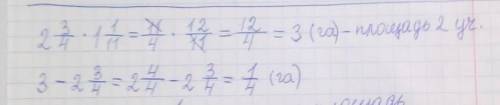 2 3/4 · 1 1/11 = 11/4 · 12/11 = 12/4 = 3 (га) - площадь 2 уч.
3 - 2 3/4 = 2 4/4 - 2 3/4 = 1/4 (га)